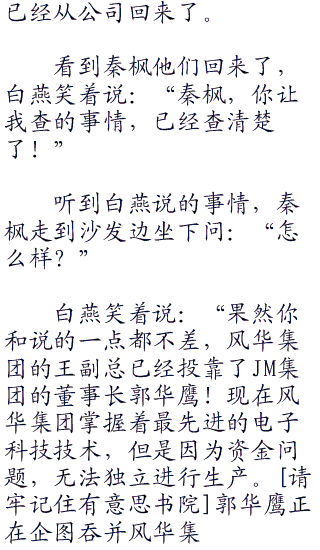 已经从公司回来了。
看到秦枫他们回来了，
白燕笑着说：“秦枫，你让
我查的事情，已经查清楚
了！”
听到白燕说的事情，秦
枫走到沙发边坐下问：“怎
么样？”
白燕笑着说：“果然你
和说的一点都不差，风华集
团的王副总已经投靠了JM集
团的董事长郭华鹰！现在风
华集团掌握着最先进的电子
科技技术，但是因为资金问
题，无法独立进行生产。[请
牢记住有意思书院]郭华鹰正
在企图吞并风华集